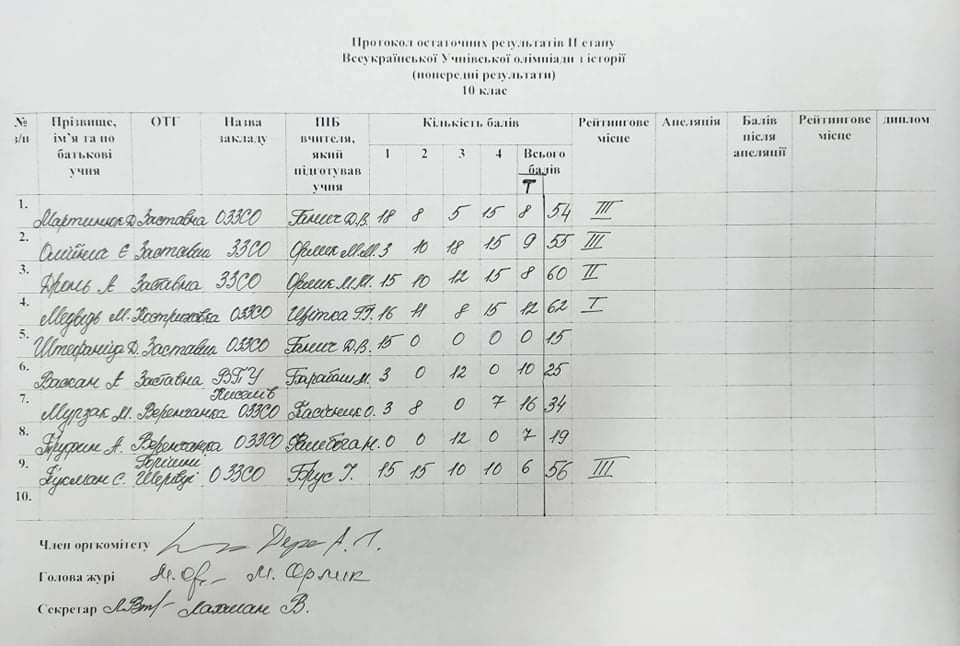 Протокол остаточних результатів ІІ етапу
Всеукраїнської Учнівської олімпіади з історії
(попередні результати)
10 клас
№ з/п Прізвище, ім’я та по батькові учня ОТГ Назва закладу ПІБ вчителя, який підготував учня Кількість балів Рейтингове місце Апеляція Балів після апеляції Рейтингове місце диплом
1 2 3 4 Всього балів
Т
1. Мартинюк Д. Заставна ОЗЗСО Генич Д.В. 18 8 5 15 8 54 ІІІ
2. Олійник Є Заставна ЗЗСО Орлик М.М. 3 10 18 15 9 55 ІІІ
3. Дроль А Заставна ЗЗСО Орлик М.М. 15 10 12 15 8 60 ІІ
4. Медвідь М. Кострижівка ОЗЗСО Цвітка Г.Г. 16 11 8 15 12 62 І
5. Д. Заставна ОЗЗСО Генич Д.В. 15 0 0 0 0 15
6. Васкан А Заставна ВПУ Барабаш М. 3 0 12 0 10 25
7. Мурзак М. Веренчанка ОЗЗСО Пасічник О. 3 8 0 7 16 34
8. А. Веренчанка ОЗЗСО Н. 0 0 12 0 7 19
9. С. Горішні Шерівці ОЗЗСО Брус Г. 15 15 10 10 6 56 ІІІ
10.
Член оргкомітету А. П.
Голова журі М. Орлик
Секретар Лахман В.